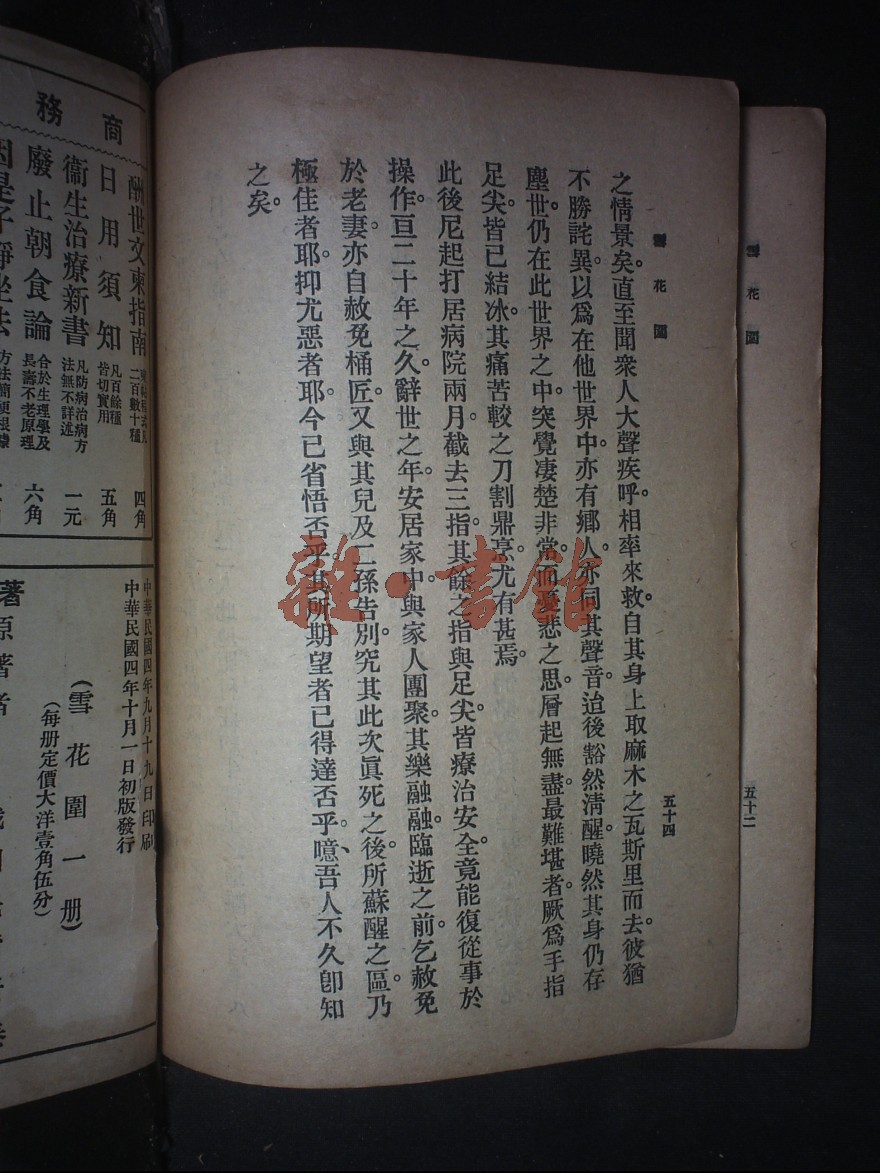 雪花圍
五十二
雪花圍
五十四
之情景矣。直至聞衆人大聲疾呼。相率來救。自其身上取麻木之瓦斯里而去。彼猶
不勝詫異。以爲在他世界中。亦有鄉人。亦同其聲音。迨後豁然清醒。曉然其身仍存
塵世。仍在此世界之中。突覺凄楚非常。而憂悲之思。層起無盡。最難堪者。厥爲手指
足尖。皆已結冰。其痛苦較之刀割鼎烹。尤有甚焉。
此後尼起打居病院兩月。截去三指。其餘之指與足尖。皆療治安全。竟能復從事於
操作。亘二十年之久。辭世之年。安居家中。與家人團聚。其樂融融。臨逝之前。乞赦免
於老妻。亦自赦免桶匠。又與其兒及二孫告別。究其此次眞死之後。所蘇醒之區。乃
極佳者耶。抑尤惡者耶。今已省悟否乎。其所期望者已得達否乎。噫、吾人不久卽知
之矣。
雜·書館
商務
酬世文柬指南 二百數十種 四角
日用須知 凡百餘種皆切實用 五角
衞生治療新書 凡防病治病方法無不詳述 一元
廢止朝食論 合於生理學及長壽不老原理 六角
因是子靜坐法 方法簡便根據
中華民國四年九月十九日印刷
中華民國四年十月一日初版發行
(雪花圍一册)
(每册定價大洋壹角伍分)
原著者